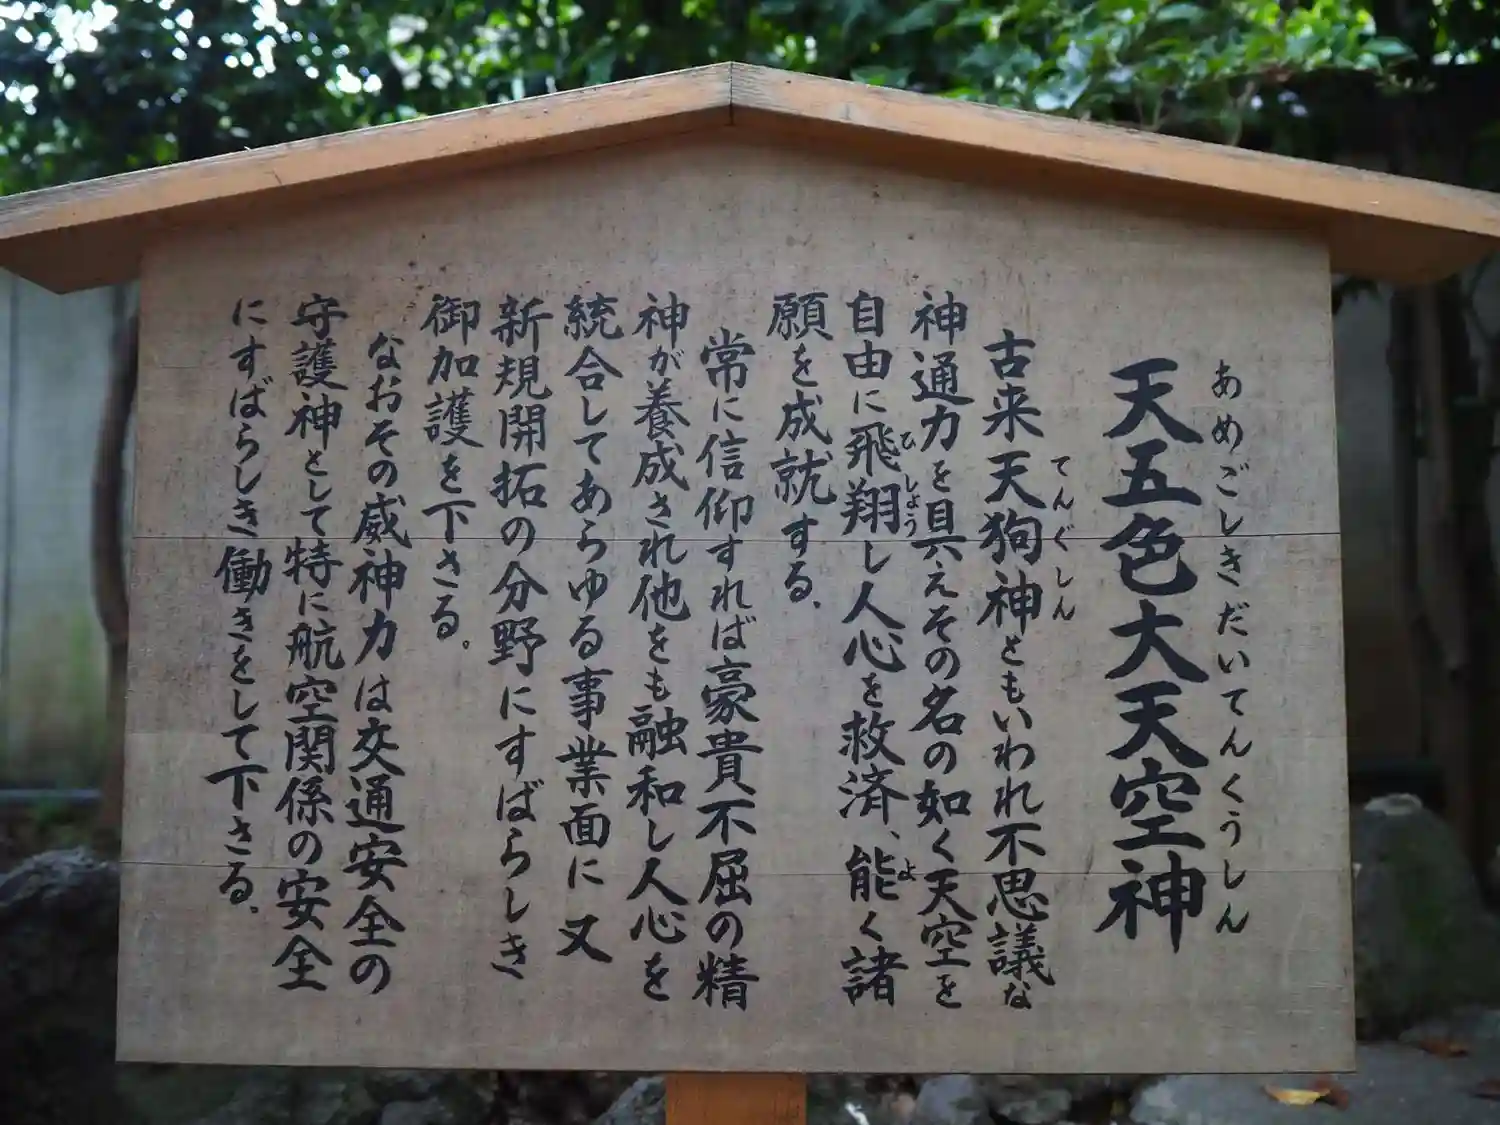 あめごしきだいてんくうしん
天五色大天空神
てんぐしん
古来天狗神ともいわれ不思議な
神通力を具えその名の如く天空を
ひしょう よ
自由に飛翔し人心を救済、能く諸
願を成就する.
常に信仰すれば豪貴不屈の精
神が養成され他をも融和し人心を
統合してあらゆる事業面に又
新規開拓の分野にすばらしき
御加護を下さる。
なおその威神力は交通安全の
守護神として特に航空関係の安全
にすばらしき働きをして下さる.